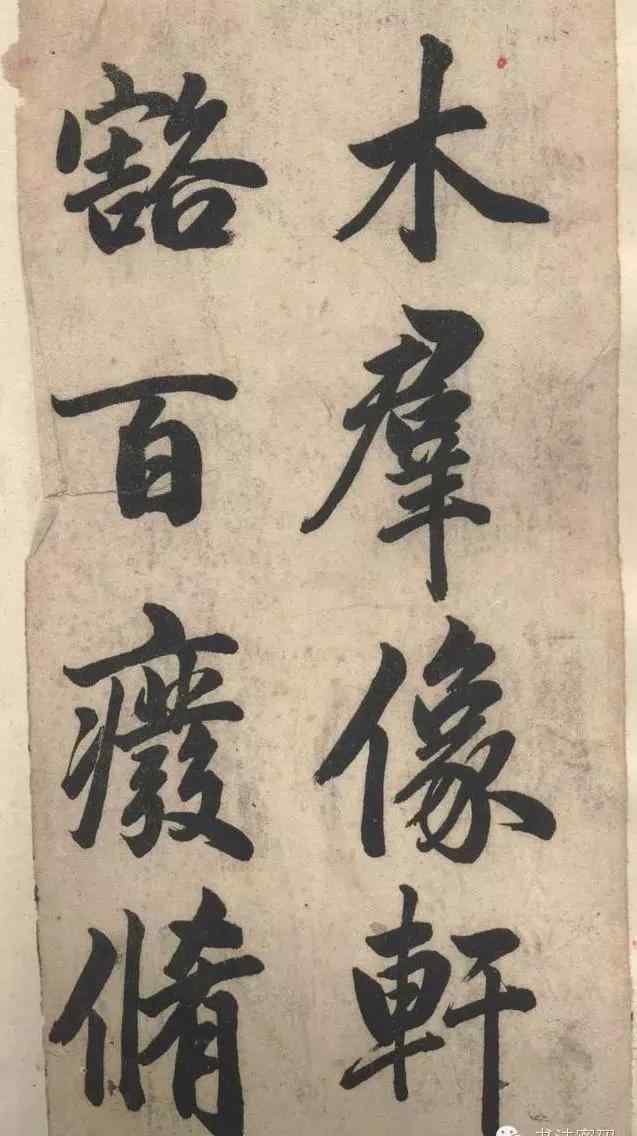 木羣像軒
豁百癈脩
书法密码